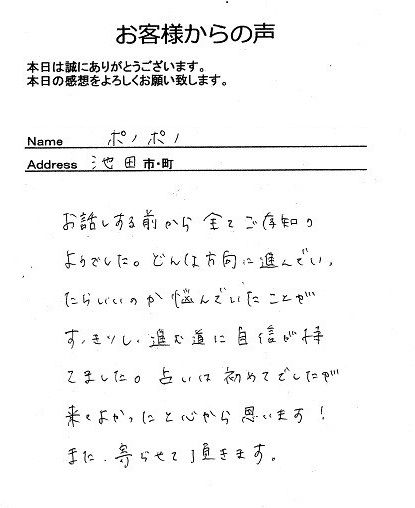 お客様からの声
本日は誠にありがとうございます。
本日の感想をよろしくお願い致します。
Name ポノポノ
Address 池田 市・町
お話しする前から全てご存知の
ようでした。どんな方向に進んでい
たらいいのか悩んでいたことが
すっきりし、進む道に自信が持
てました。占いは初めてでしたが
来てよかったと心から思います!
また、寄らせて頂きます。